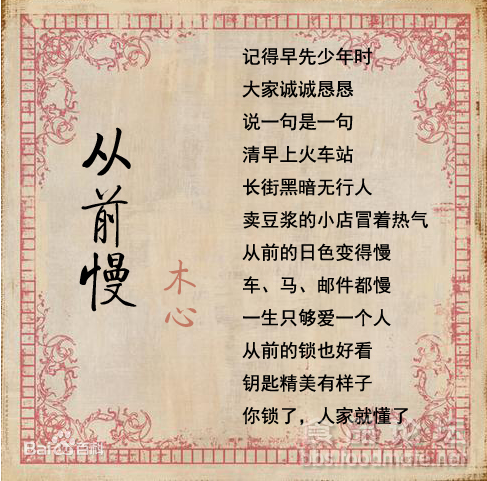 从前慢
木心
记得早先少年时
大家诚诚恳恳
说一句是一句
清早上火车站
长街黑暗无行人
卖豆浆的小店冒着热气
从前的日色变得慢
车、马、邮件都慢
一生只够爱一个人
从前的锁也好看
钥匙精美有样子
你锁了，人家就懂了
Bai百科
bbs.foodmate.net